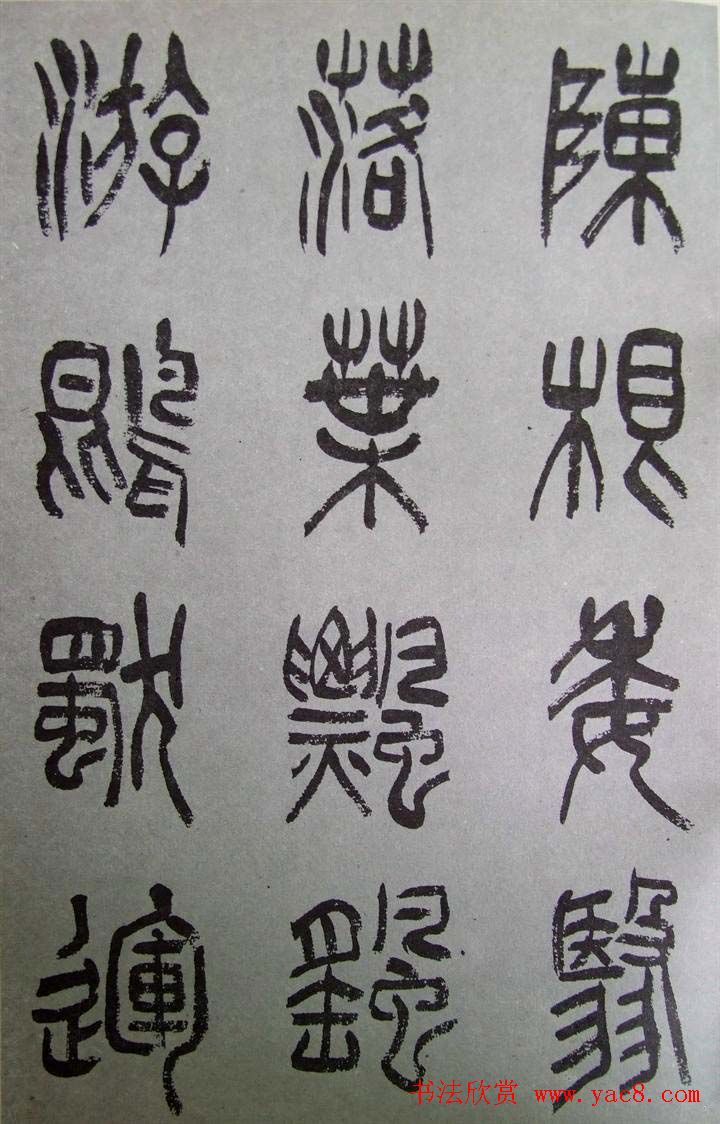 陳根委翳
落葉飄颻
游鵾獨運
书法欣赏 www.yac8.com